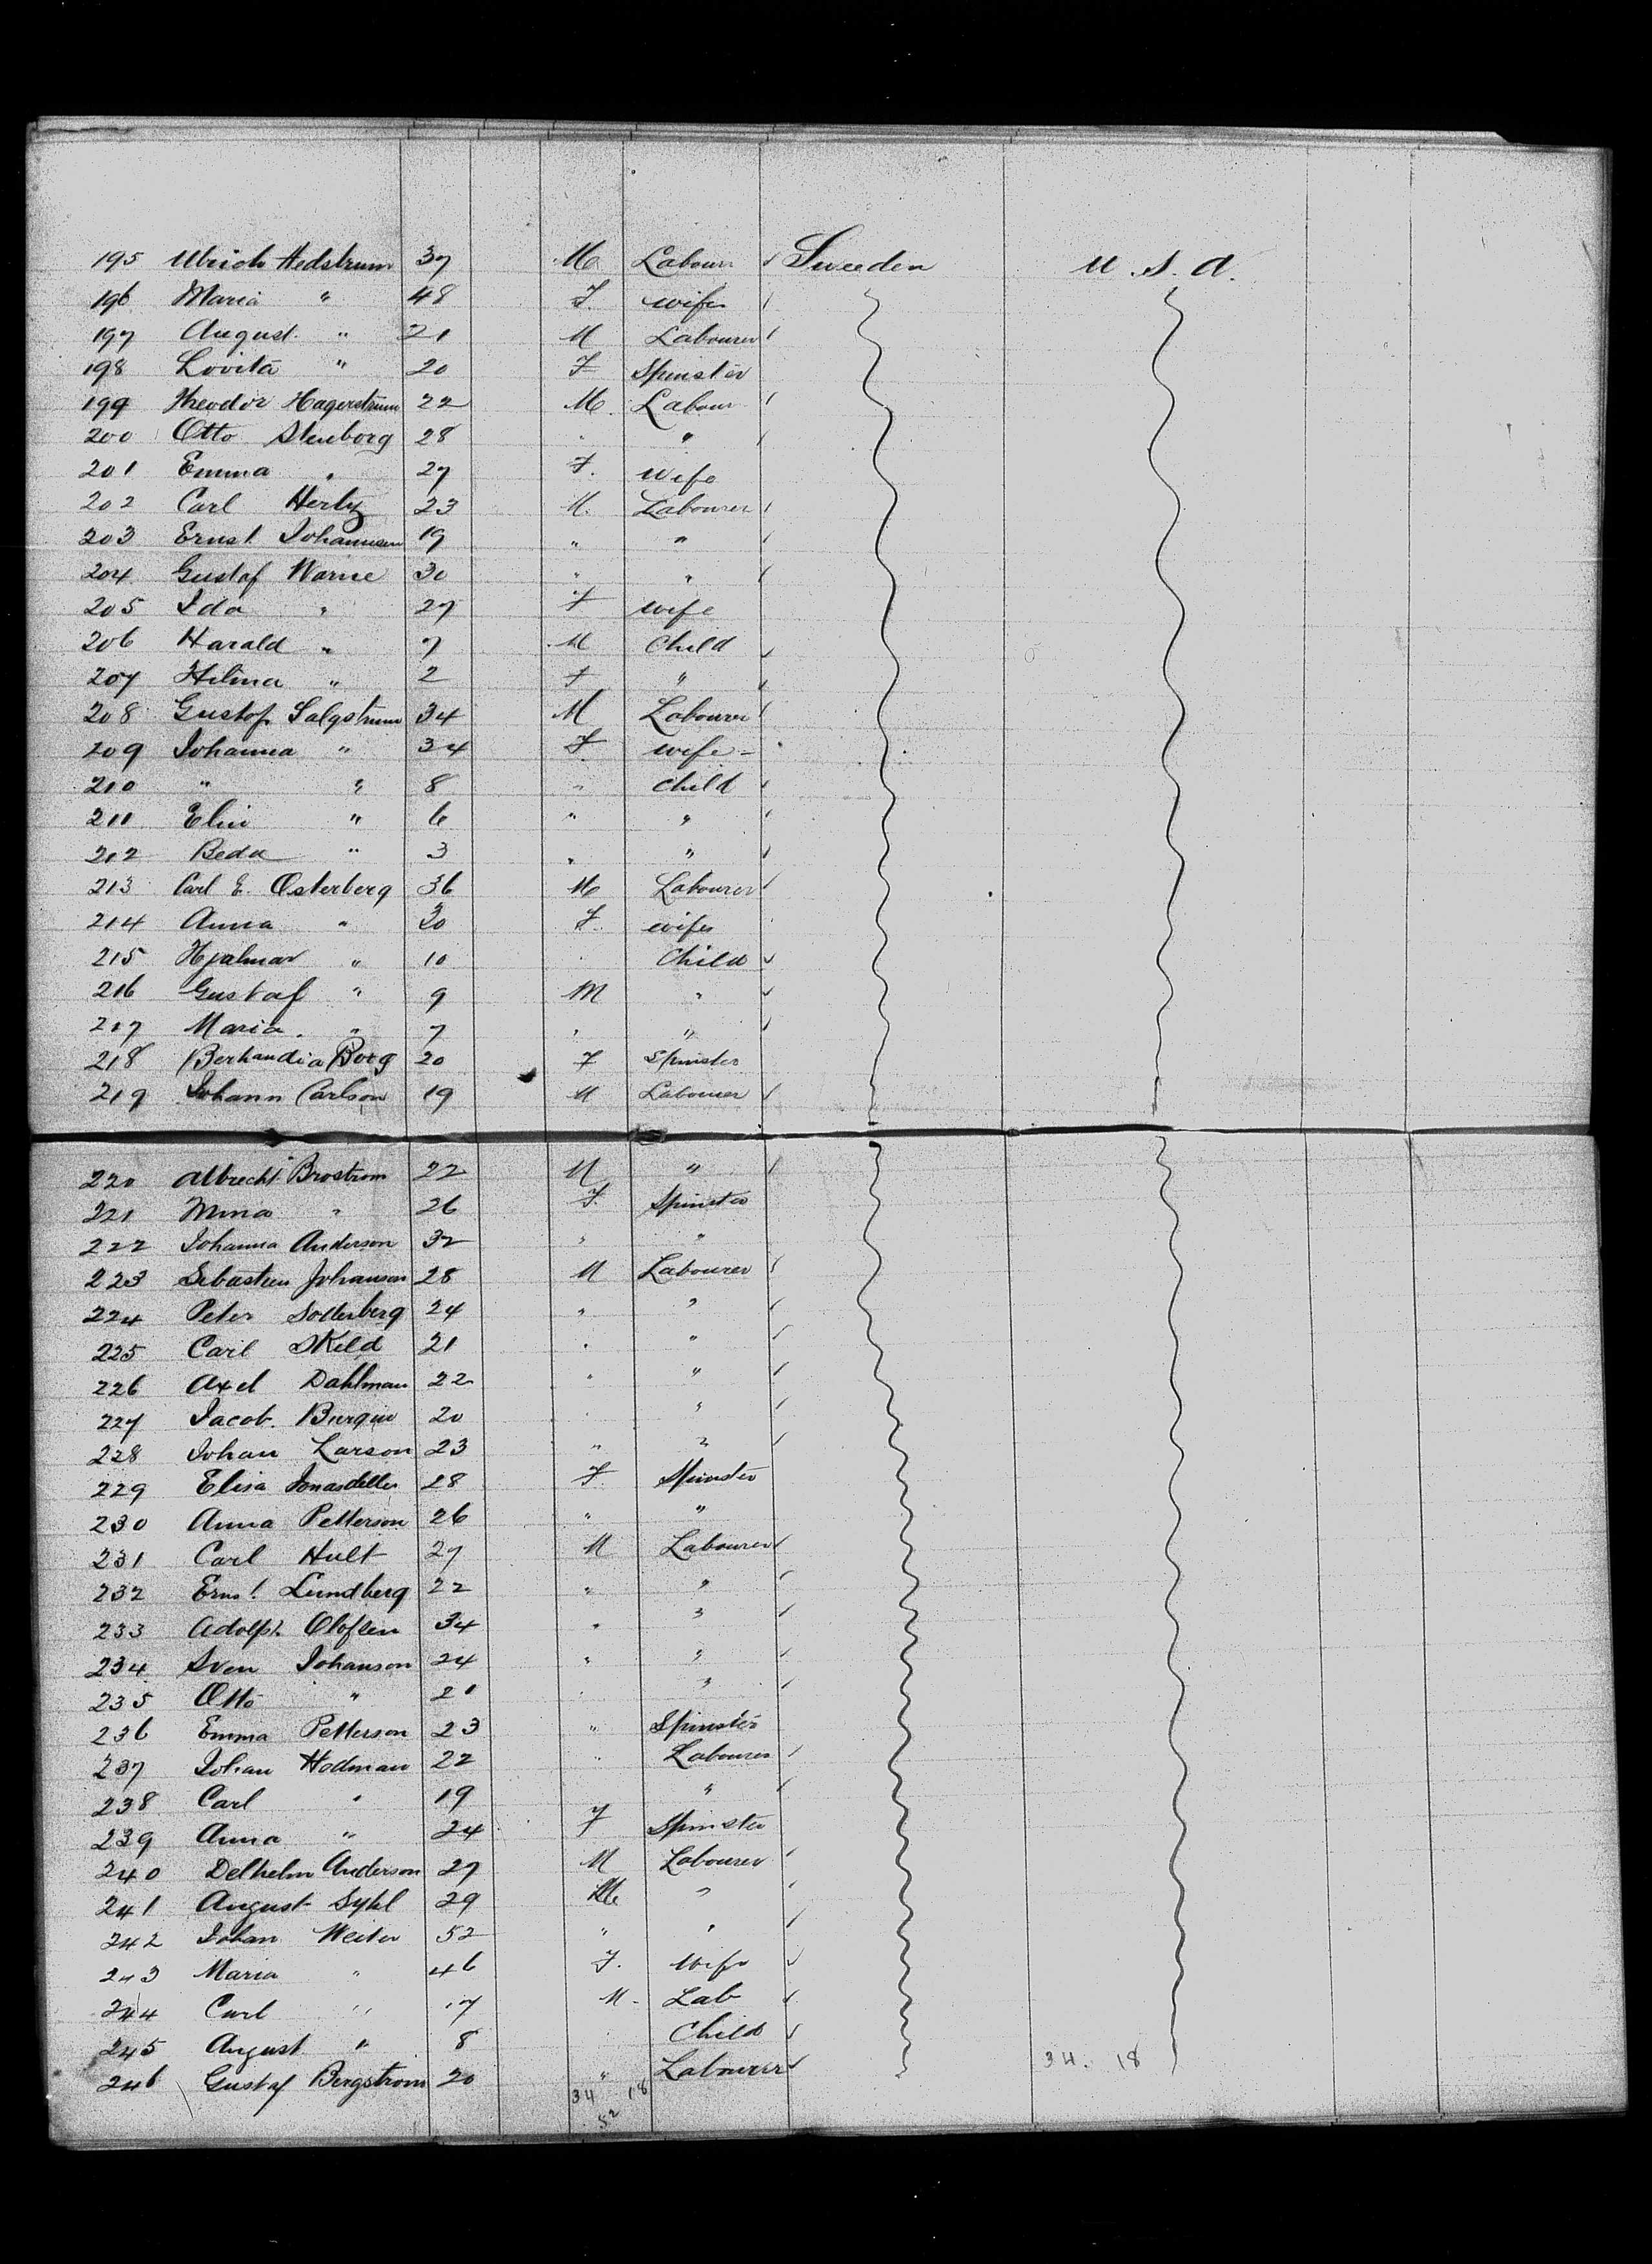 195 Ulrich Hedstrum 37 M Labourr Sweden U.S.A.
196 Maria " 48 F. wife
197 August " 21 M Labourer
198 Lovita " 20 F Spinster
199 Theodor Hagerstrum 22 M. Labour
200 Otto Stenborg 28 " "
201 Emma " 27 F. Wife
202 Carl 23 M. Labourer
203 Ernst Johannsen 19 " "
204 Gustaf Warne 30 " "
205 Ida " 27 F wife
206 Harald " 7 M Child
207 Hilma " 2 F "
208 Gustof Salgstrum 34 M Labourer
209 Johanna " 34 F wife
210 " " 8 " child
211 Elin " 6 " "
212 Beda " 3 " "
213 Carl E. Osterberg 36 M Labourer
214 Anna " 30 F. wife
215 Hjalmar " 10 " Child
216 Gustaf " 9 M "
217 Maria " 7 " "
218 Berhandia Borg 20 F Spinster
219 Johann Carlson 19 M Labourer
220 Albrecht Brostrom 22 M "
221 Mina " 26 F. Spinster
222 Johanna Anderson 32 " "
223 Johanson 28 M Labourer
224 Peter Sotterberg 24 " "
225 Carl Skild 21 " "
226 Axel Dahlman 22 " "
227 Jacob Burquin 20 " "
228 Johan Larson 23 " "
229 Elisa 28 F Spinster
230 Anna Petterson 26 " "
231 Carl Hult 27 M Labourer
232 Ernst Lundberg 22 " "
233 Adolph Olofsen 34 " "
234 Sven Johanson 24 " "
235 Otto " 21 " "
236 Emma Petterson 23 " Spinster
237 Johan Hodman 22 " Labourer
238 Carl " 19 "
239 Anna " 24 F Spinster
240 Delhelm Anderson 27 M Labourer
241 August Sykl 29 M "
242 Johan Weiter 52 " "
243 Maria " 46 F. Wife
244 Carl " 17 M. Lab
245 August " 8 Child
246 Gustaf Bergstrom 20 " Labourer
34 18 34. 18
52